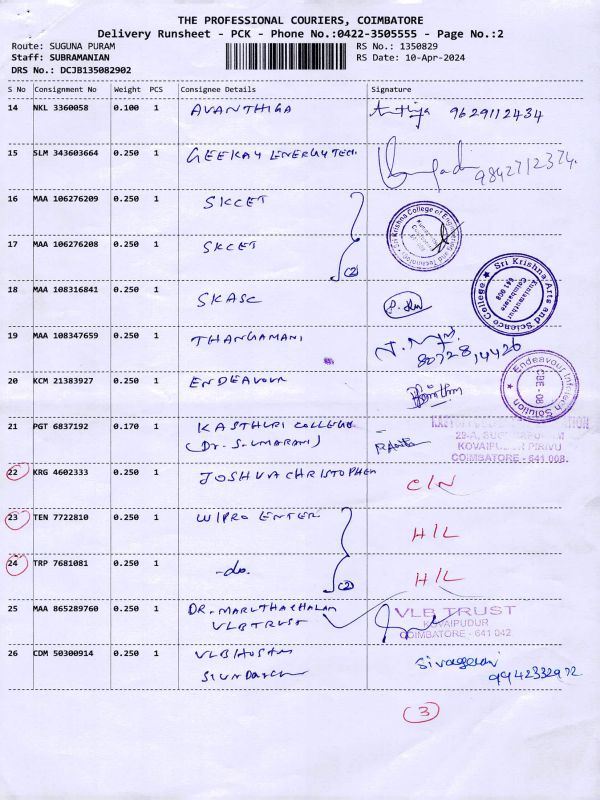 THE PROFESSIONAL COURIERS, COIMBATORE
Delivery Runsheet - PCK - Phone No.:0422-3505555 - Page No.:2
Route: SUGUNA PURAM RS No.: 1350829
Staff: SUBRAMANIAN RS Date: 10-Apr-2024
DRS No.: DCJB135082902
S No Consignment No Weight PCS Consignee Details Signature
14 NKL 3360058 0.100 1 AVANTHIGA 9629112434
15 SLM 343603664 0.250 1 GEEKAY ENERGY TECH
16 MAA 106276209 0.250 1 SKCET
Sri Krishna College of Engineering and Technology
17 MAA 106276208 0.250 1 SKCET
(2)
Sri Krishna Arts and Science College
Kuniamuthur
Coimbatore
641 008
18 MAA 108316841 0.250 1 SKASC
19 MAA 108347659 0.250 1 THANGAMANI
20 KCM 21383927 0.250 1 ENDEAVOUR
Endeavour Infotech Solution
CBE - 08
21 PGT 6837192 0.170 1 KASTHURI COLLEGE
(Dr. S. UMARANI)
KOVAIPUDUR PIRIVU
COIMBATORE - 641 008.
22 KRG 4602333 0.250 1 JOSHUVA CHRISTOPHER C/N
23 TEN 7722810 0.250 1 WIPRO ENTER H/L
24 TRP 7681081 0.250 1 -do. (2) H/L
25 MAA 865289760 0.250 1 DR. MARUTHACHALAM
VLB TRUST
VLB TRUST
KOVAIPUDUR
COIMBATORE - 641 042.
26 CDM 50300914 0.250 1 VLB
9942332972
3